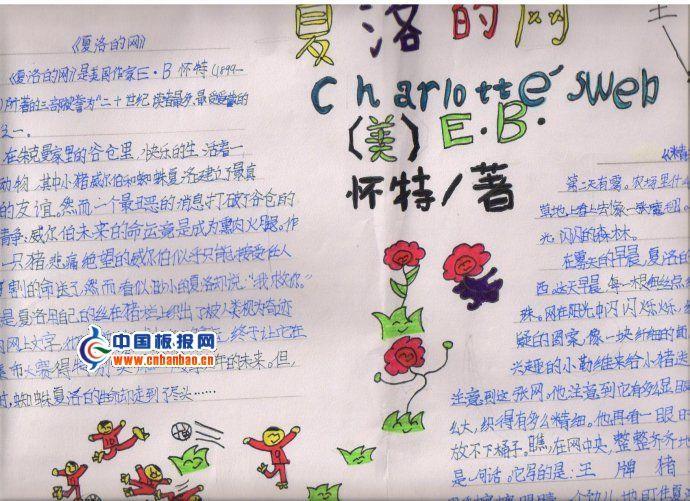 夏洛的网
Charlotte's Web
(美) E.B.
怀特/著
《夏洛的网》
《夏洛的网》是美国作家E·B怀特(1899—
)所著的三部被誉为"二十世纪读者最多、最受爱戴的
之一。
在朱克曼家里的谷仓里,快乐的生活着一
动物,其中小猪威尔伯和蜘蛛夏洛建立了最真
的友谊。然而,一个最丑恶的消息打破了谷仓的
静:威尔伯未来的命运竟是成为熏肉火腿。作
一只猪,悲痛绝望的威尔伯似乎只能接受任人
割的命运了,然而,看似渺小的夏洛却说:"我救你。"
是夏洛用自己的丝在猪栏上织出了被人类视为奇迹
网上文字,
终于让它在
集市大赛
的未来。但,
时,蜘蛛夏洛的生命却走到了尽头……
中国板报网
www.cnbanbao.cn
王
《精
第二天有雾。农场里什
草地上看上去像一张魔毯。
光闪闪的森林。
在雾天的早晨,夏洛的
西。这天早晨,每一根细丝点
珠。网在阳光中闪闪烁烁,
疑的图案,像一块纤细的面
兴趣的小勒维来给小猪送
注意到这张网。他注意到它有多么显眼
么大,织得有多么精细。他再看一眼时
放不下桶子。瞧,在网中央,整整齐齐地
是一句话。它写的是:王牌猪